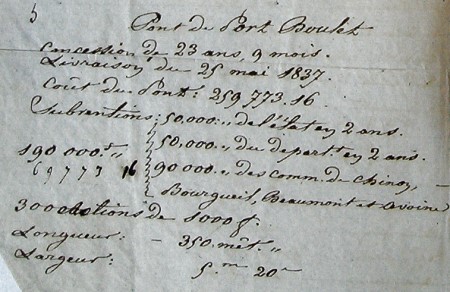 5
Pont de Port Boulet
Concession de 23 ans, 9 mois.
Livraison du 25 mai 1837.
Coût du Pont: 259 773.16.
Subventions: 50,000 " de l'Etat en 2 ans.
50,000 " du départ.t en 2 ans.
190 000.f "
90 000 " des comm. de Chinon,
69773 16
Bourgueil, Beaumont et Avoine
300 actions de 1000 f.
Longueur: - 350. mèt. "
Largeur: 5.m 20c